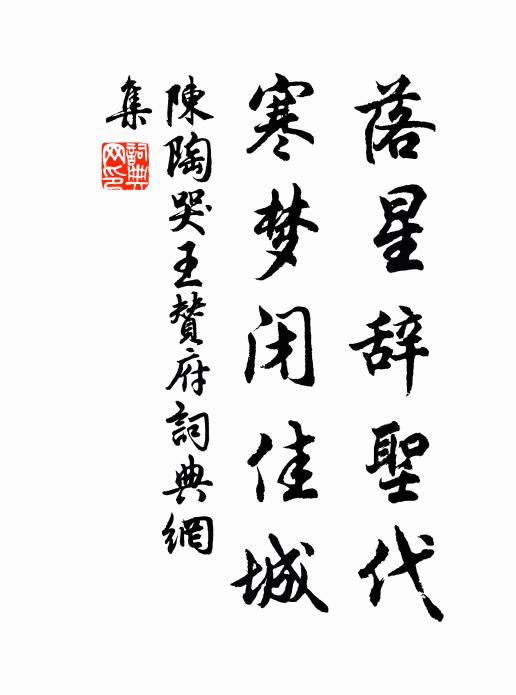 落星辞聖代
寒梦闭佳城
陳陶哭王贊府詞典網
集
詞典網印